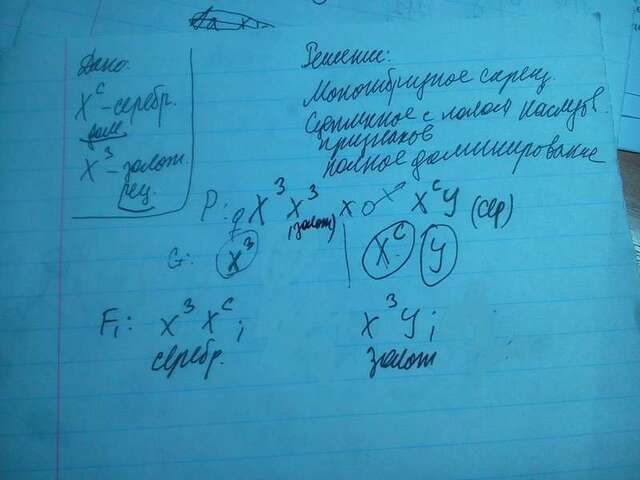 Дано:
X^С - серебр.
дом
X^З - золот.
рец.
Решение:
Моногибридное скрещ.
Сцепленное с полом наследов.
признаков
полное доминирование
P: ♀ X^З X^З x ♂ X^С У (сер)
(золот)
G: X^З | X^С У
F₁: X^З X^С ; X^З У ;
серебр. золот